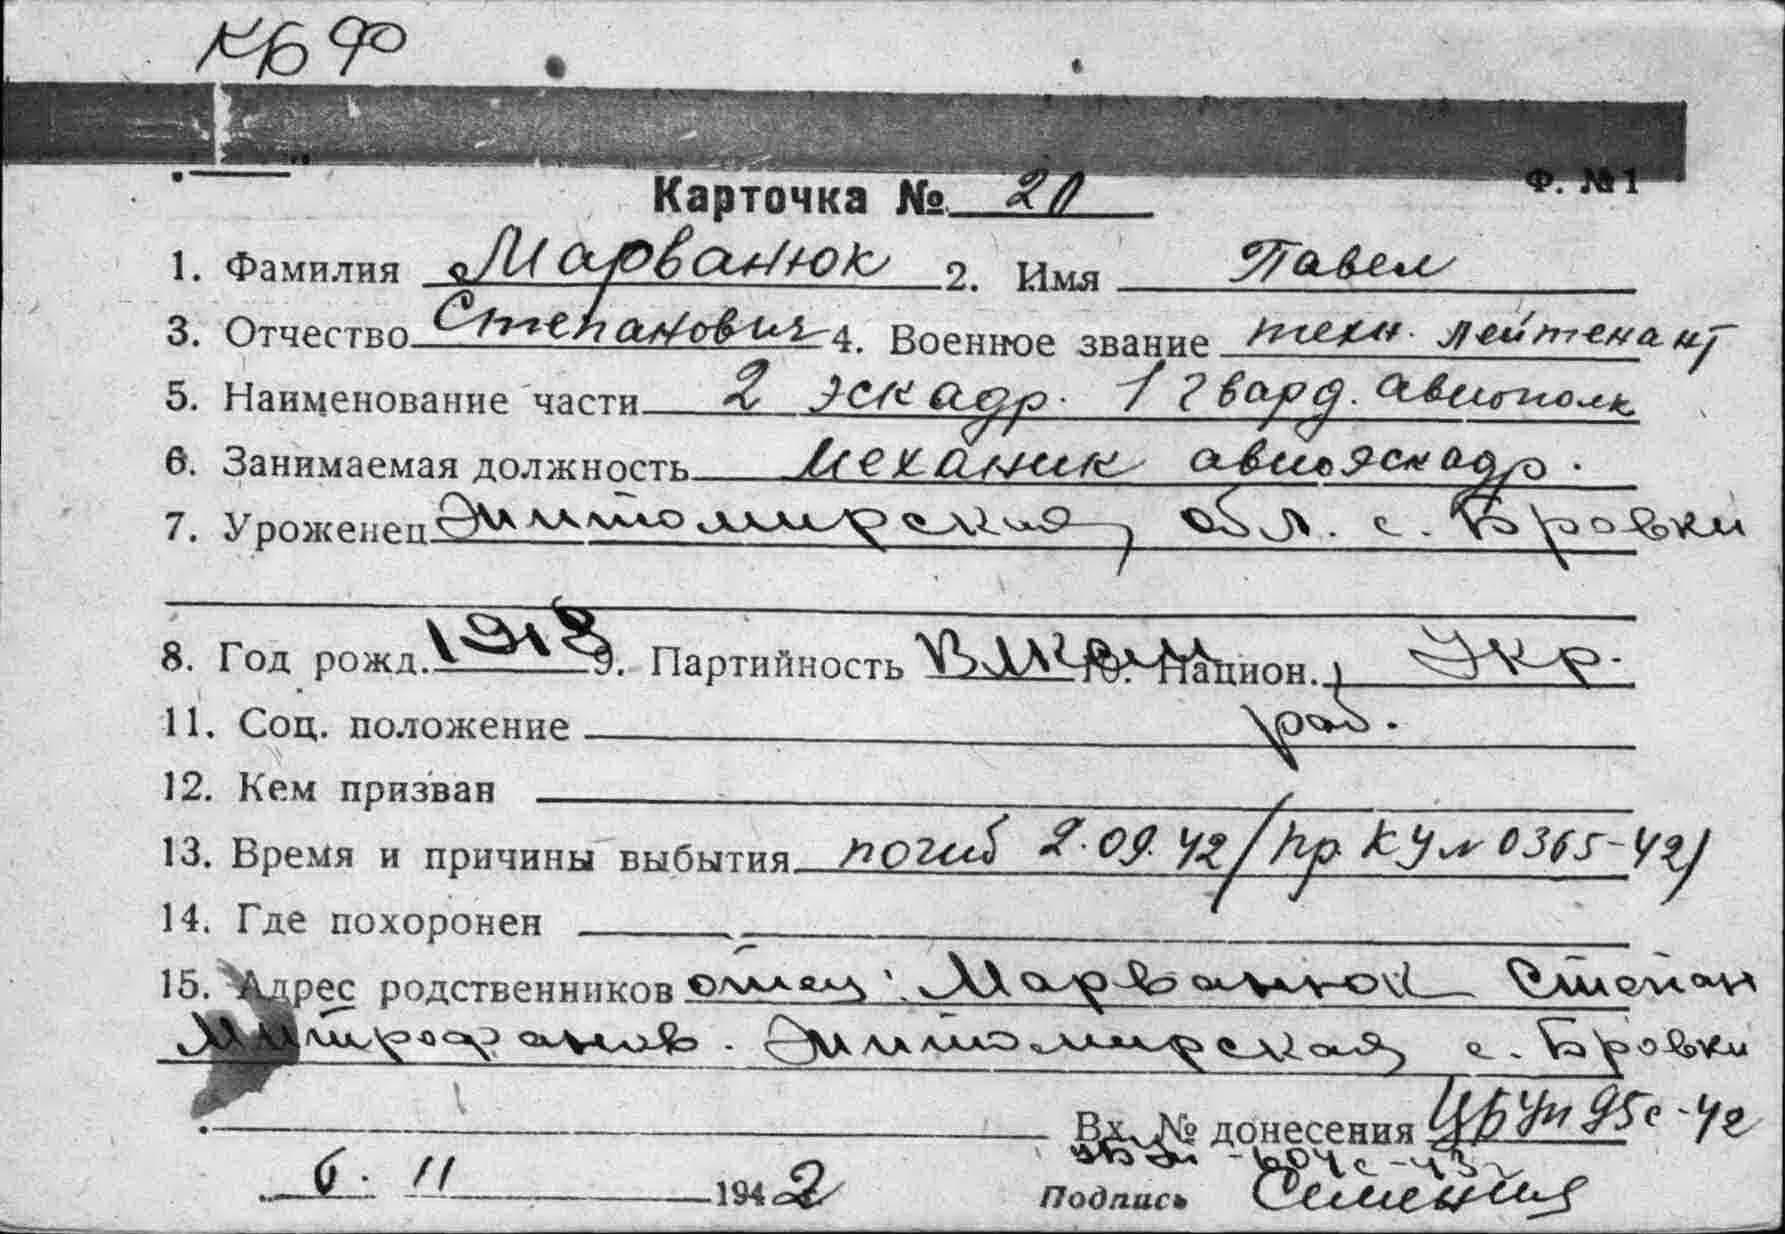 КБФ
Ф. №1
Карточка № 20
1. Фамилия Марванюк 2. Имя Павел
3. Отчество Степанович 4. Военное звание техн. лейтенант
5. Наименование части 2 эскадр. 1 гвард. авиополк
6. Занимаемая должность механик авиоэскадр.
7. Уроженец Житомирская обл. с. Бровки
8. Год рожд. 1918 9. Партийность ВЛКСМ 10. Национ. Укр.
11. Соц. положение раб.
12. Кем призван
13. Время и причины выбытия погиб 2.09.42 /пр. КУ № 0365-42/
14. Где похоронен
15. Адрес родственников отец: Марванюк Степан
Митрофанов. Житомирская с. Бровки
Вх. № донесения 95с-42
6. 11 1942
Подпись